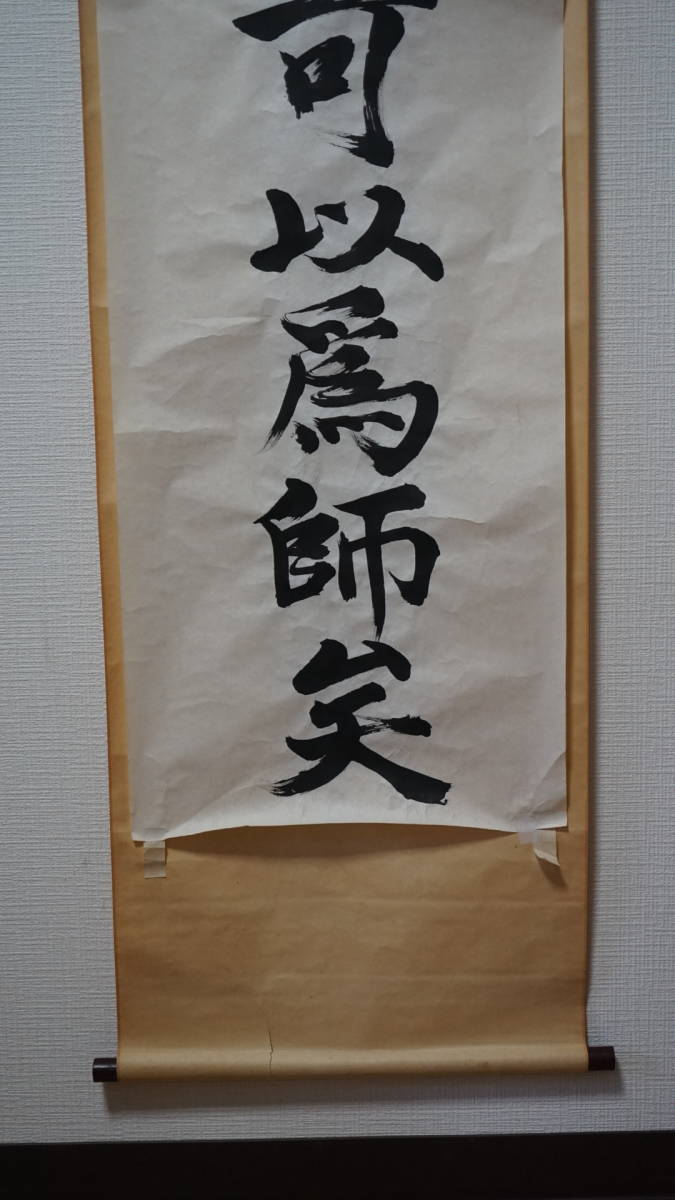 可以爲師矣